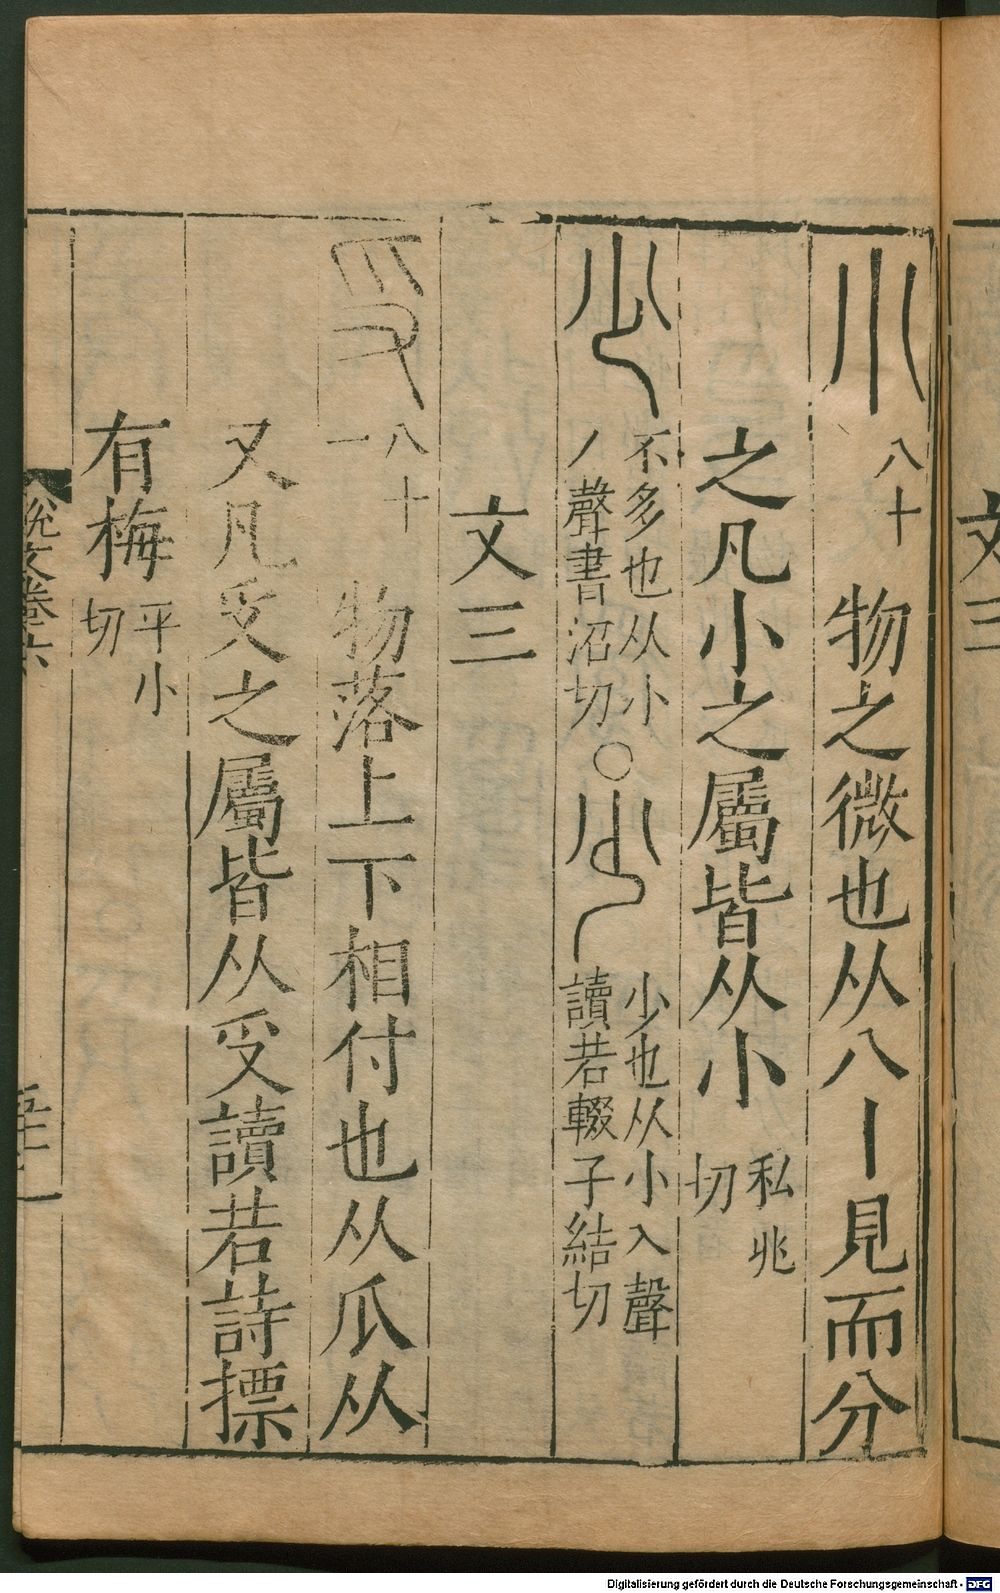 小 八十 物之微也从八丨見而分
之凡小之屬皆从小 私兆切
少 不多也从小丿聲書沼切○𡮐 少也从小入聲讀若輟子結切
文三
𠬪 八十一 物落上下相付也从爪从
又凡𠬪之屬皆从𠬪讀若詩摽
有梅 平小切
說文卷六
文三
Digitalisierung gefördert durch die Deutsche Forschungsgemeinschaft - DFG